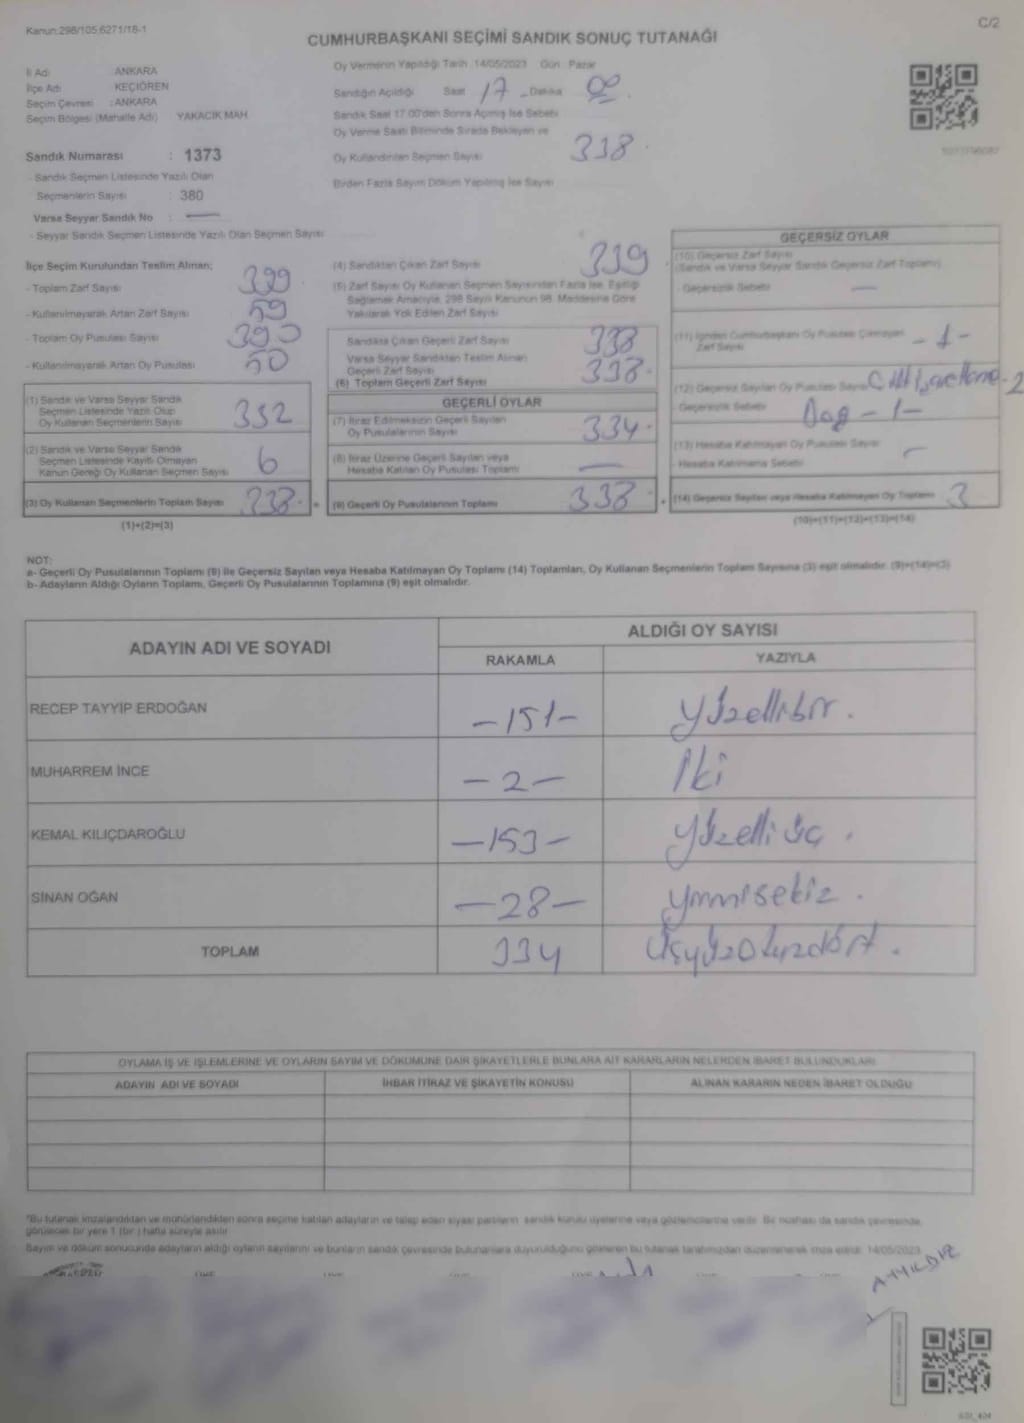 Kanun:298/105,6271/18-1
C/2
CUMHURBAŞKANI SEÇİMİ SANDIK SONUÇ TUTANAĞI
İl Adı : ANKARA
İlçe Adı : KEÇİÖREN
Seçim Çevresi : ANKARA
Seçim Bölgesi (Mahalle Adı) YAKACIK MAH.
Sandık Numarası : 1373
- Sandık Seçmen Listesinde Yazılı Olan
Seçmenlerin Sayısı : 380
Varsa Seyyar Sandık No : —
- Seyyar Sandık Seçmen Listesinde Yazılı Olan Seçmen Sayısı
Oy Vermenin Yapıldığı Tarih :14/05/2023 Gün : Pazar
Sandığın Açıldığı Saat 17 Dakika
Sandık Saat 17.00'den Sonra Açılmış İse Sebebi
Oy Verme Saati Bitiminde Sırada Bekleyen ve
Oy Kullandırılan Seçmen Sayısı 338
Birden Fazla Sayım Döküm Yapılmış İse Sayısı
İlçe Seçim Kurulundan Teslim Alınan;
- Toplam Zarf Sayısı 399
- Kullanılmayarak Artan Zarf Sayısı 59
- Toplam Oy Pusulası Sayısı 390
- Kullanılmayarak Artan Oy Pusulası 50
(1) Sandık ve Varsa Seyyar Sandık
Seçmen Listesinde Yazılı Olup
Oy Kullanan Seçmenlerin Sayısı 332
(2) Sandık ve Varsa Seyyar Sandık
Seçmen Listesinde Kayıtlı Olmayan
Kanun Gereği Oy Kullanan Seçmen Sayısı 6
(3) Oy Kullanan Seçmenlerin Toplam Sayısı 338
(1)+(2)=(3)
(4) Sandıktan Çıkan Zarf Sayısı 339
(5) Zarf Sayısı Oy Kullanan Seçmen Sayısından Fazla İse, Eşitliği
Sağlamak Amacıyla, 298 Sayılı Kanunun 98. Maddesine Göre
Yakılarak Yok Edilen Zarf Sayısı
Sandıkta Çıkan Geçerli Zarf Sayısı 338
Varsa Seyyar Sandıktan Teslim Alınan
Geçerli Zarf Sayısı
(6) Toplam Geçerli Zarf Sayısı 338
GEÇERLİ OYLAR
(7) İtiraz Edilmeksizin Geçerli Sayılan
Oy Pusulalarının Sayısı 334
(8) İtiraz Üzerine Geçerli Sayılan veya
Hesaba Katılan Oy Pusulası Toplamı —
(9) Geçerli Oy Pusulalarının Toplamı 338
GEÇERSİZ OYLAR
(10) Geçersiz Zarf Sayısı
(Sandık ve Varsa Seyyar Sandık Geçersiz Zarf Toplamı)
- Geçersizlik Sebebi —
(11) İçinden Cumhurbaşkanı Oy Pusulası Çıkmayan
Zarf Sayısı -1-
(12) Geçersiz Sayılan Oy Pusulası Sayısı
- Geçersizlik Sebebi -1-
(13) Hesaba Katılmayan Oy Pusulası Sayısı
- Hesaba Katılmama Sebebi
(14) Geçersiz Sayılan veya Hesaba Katılmayan Oy Toplamı 3
(10)+(11)+(12)+(13)=(14)
NOT:
a- Geçerli Oy Pusulalarının Toplamı (9) ile Geçersiz Sayılan veya Hesaba Katılmayan Oy Toplamı (14) Toplamları, Oy Kullanan Seçmenlerin Toplam Sayısına (3) eşit olmalıdır. (9)+(14)=(3)
b- Adayların Aldığı Oyların Toplamı, Geçerli Oy Pusulalarının Toplamına (9) eşit olmalıdır.
ADAYIN ADI VE SOYADI
ALDIĞI OY SAYISI
RAKAMLA YAZIYLA
RECEP TAYYİP ERDOĞAN -151- yüzellibir.
MUHARREM İNCE -2- İki
KEMAL KILIÇDAROĞLU -153- yüzelli üç.
SİNAN OĞAN -28- yirmisekiz.
TOPLAM 334 üçyüzotuzdört.
OYLAMA İŞ VE İŞLEMLERİNE VE OYLARIN SAYIM VE DÖKÜMÜNE DAİR ŞİKAYETLERLE BUNLARA AİT KARARLARIN NELERDEN İBARET BULUNDUKLARI
ADAYIN ADI VE SOYADI İHBAR İTİRAZ VE ŞİKAYETİN KONUSU ALINAN KARARIN NEDEN İBARET OLDUĞU
*Bu tutanak imzalandıktan ve mühürlendikten sonra seçime katılan adayların ve talep eden siyasi partilerin sandık kurulu üyelerine veya gözlemcilerine verilir. Bir nüshası da sandık çevresinde,
görülecek bir yere 1 (bir ) hafta süreyle asılır.
Sayım ve döküm sonucunda adayların aldığı oyların sayılarını ve bunların sandık çevresinde bulunanlara duyurulduğunu gösteren bu tutanak tarafımızdan düzenlenerek imza edildi. 14/05/2023
AYYILDIZ